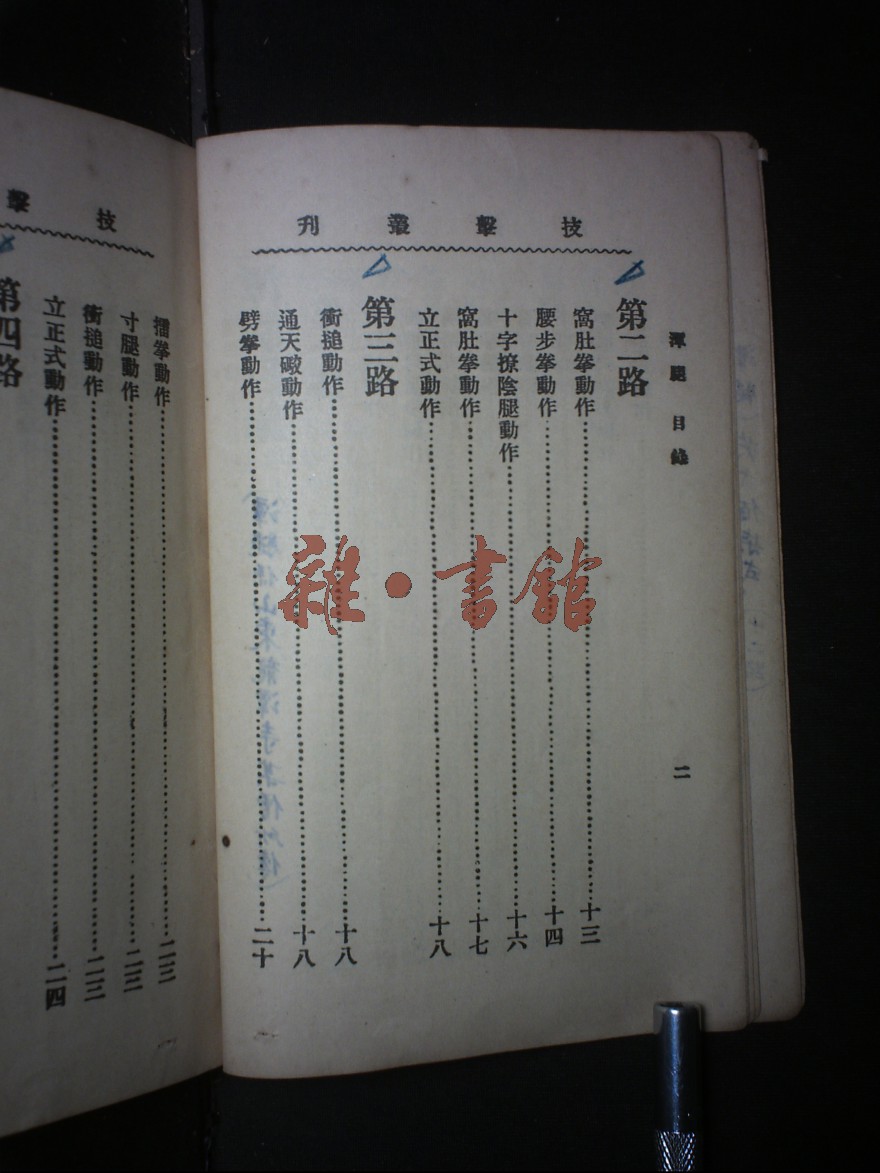 技擊叢刊
潭腿 目錄
二
第二路
窩肚拳動作……十三
腰步拳動作……十四
十字撩陰腿動作……十六
窩肚拳動作……十七
立正式動作……十八
第三路
衝搥動作……十八
通天礮動作……十八
劈拳動作……二十
技擊
擂拳動作……二三
寸腿動作……二三
衝搥動作……二三
立正式動作……二四
第四路
雜·書館